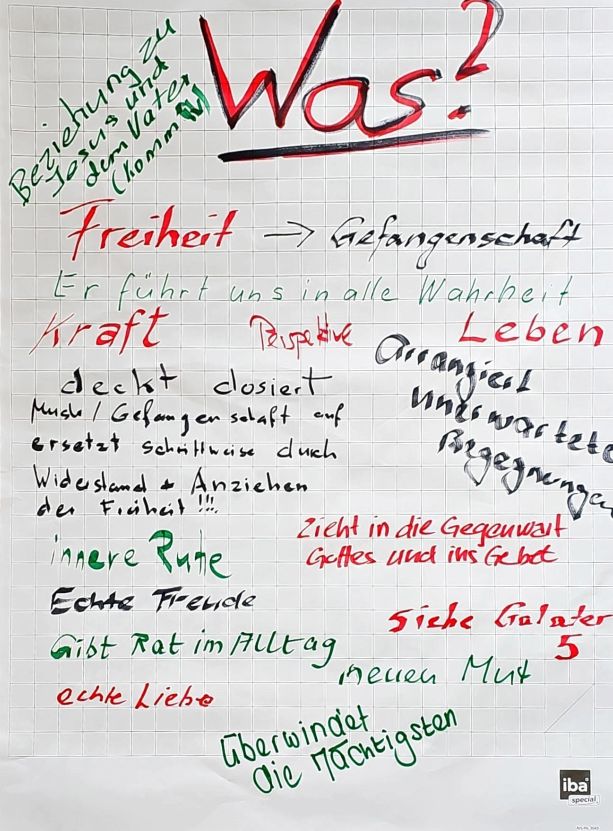 Was?
Beziehung zu
Jesus und
dem Vater
Freiheit → Gefangenschaft
Er führt uns in alle Wahrheit
Kraft Perspektive Leben
deckt dosiert
/ Gefangenschaft auf
ersetzt schrittweise durch
Widerstand + Anziehen
der Freiheit !!!
Arrangiert
unerwartete
Begegnungen
Zieht in die Gegenwart
Gottes und ins Gebet
innere Ruhe
Echte Freude
Siehe Galater
5
Gibt Rat im Alltag
neuen Mut
echte Liebe
Überwindet
die Mächtigsten
iba
special